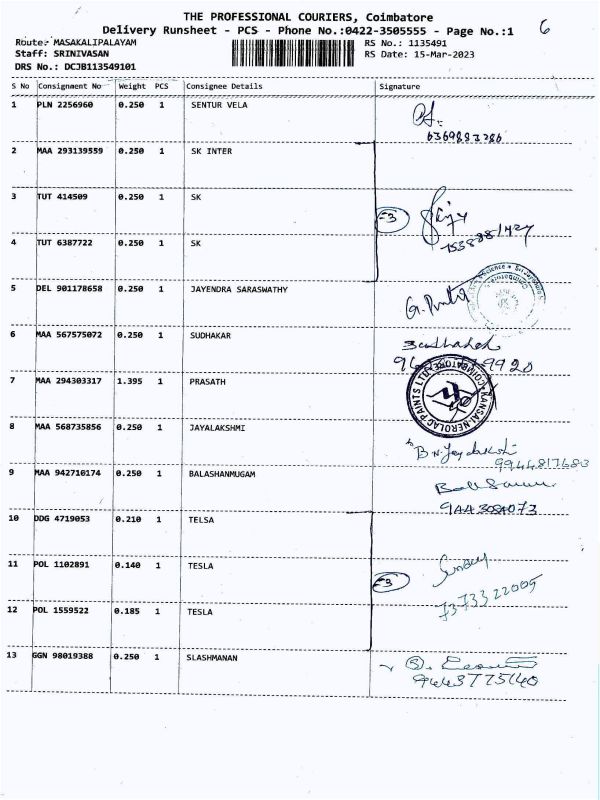 THE PROFESSIONAL COURIERS, Coimbatore
Delivery Runsheet - PCS - Phone No.:0422-3505555 - Page No.:1 6
Route: MASAKALIPALAYAM RS No.: 1135491
Staff: SRINIVASAN RS Date: 15-Mar-2023
DRS No.: DCJB113549101
S No Consignment No Weight PCS Consignee Details Signature
1 PLN 2256960 0.250 1 SENTUR VELA
6369883286
2 MAA 293139559 0.250 1 SK INTER
3 TUT 414509 0.250 1 SK
=3
4 TUT 6387722 0.250 1 SK
5 DEL 901178658 0.250 1 JAYENDRA SARASWATHY
6 MAA 567575072 0.250 1 SUDHAKAR
7 MAA 294303317 1.395 1 PRASATH
KANSAI NEROLAC PAINTS LTD. COIMBATORE
8 MAA 568735856 0.250 1 JAYALAKSHMI
9944817683
9 MAA 942710174 0.250 1 BALASHANMUGAM
10 DDG 4719053 0.210 1 TELSA
11 POL 1102891 0.140 1 TESLA
=3
7373322005
12 POL 1559522 0.185 1 TESLA
13 GGN 98019388 0.250 1 SLASHMANAN